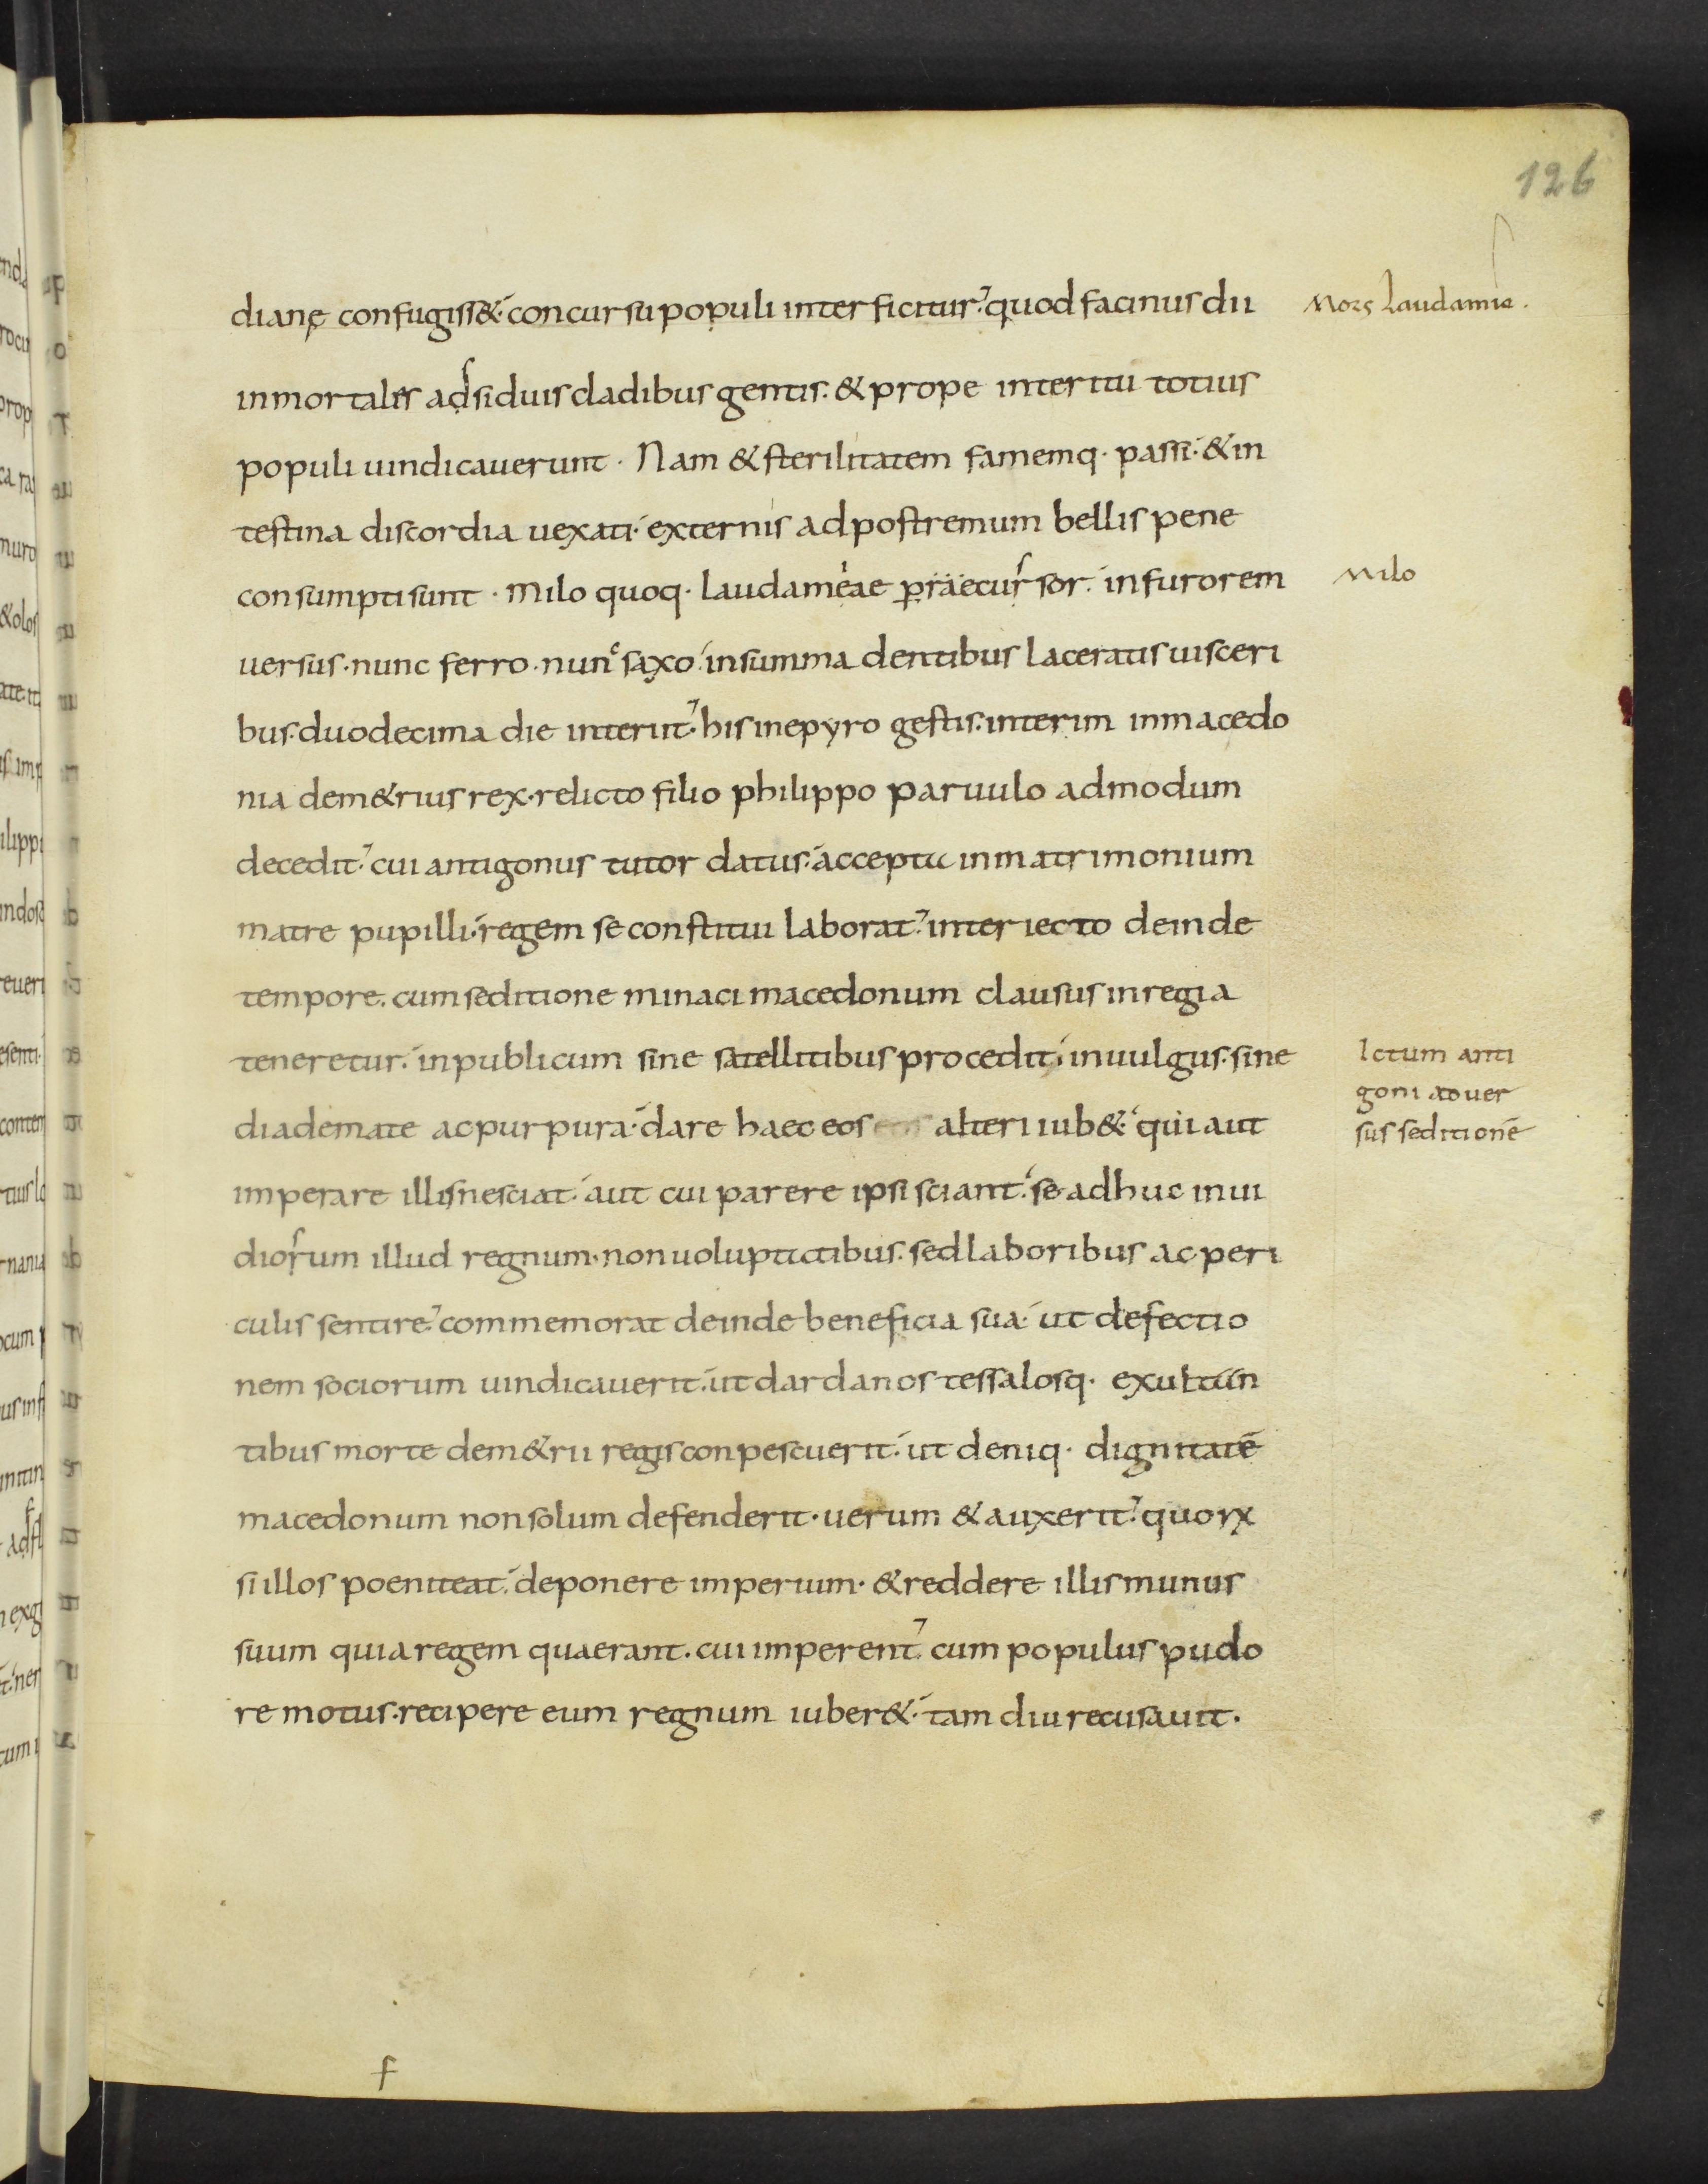 126
dianę confugiss&· concursu populi interficitur· quod facinus dii
Mors laudamie·
inmortales adsiduis cladibus gentis· & prope interitu totius
populi uindicauerunt· Nam & sterilitatem famemq· passi· & in
testina discordia uexati· externis ad postremum bellis pene
consumpti sunt· milo quoq· laudameiae praecursor· in furorem
Milo
uersus· nunc ferro· nunc saxo· in summa dentibus laceratis uisceri
bus· duodecima die interiit· his in epyro gestis· interim in macedo
nia dem&rius rex· relicto filio philippo paruulo admodum
decedit· cui antigonus tutor datus· accepta in matrimonium
matre pupilli· regem se constitui laborat· interiecto deinde
tempore· cum seditione minaci macedonum clausus in regia
teneretur· in publicum sine satellitibus procedit· in uulgus· sine
Ictum anti
goni aduer
sus seditionē
diademate ac purpura· dare haec eos alteri iub&· qui aut
imperare illis nesciat· aut cui parere ipsi sciant· se adhuc inui
diosum illud regnum· non uoluptatibus· sed laboribus ac peri
culis sentire· commemorat deinde beneficia sua· ut defectio
nem sociorum uindicauerit· ut dardanos tessalosq· exultan
tibus morte dem&rii regis conpescuerit· ut deniq· dignitatē
macedonum non solum defenderit· uerum & auxerit· quorꝝ
si illos poeniteat· deponere imperium· & reddere illis munus
suum quia regem quaerant· cui imperent· cum populus pudo
re motus· recipere eum regnum iuber&· tam diu recusauit·
f